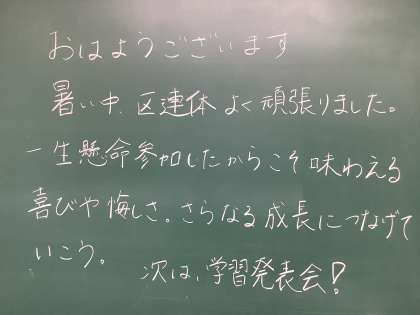 おはようございます
暑い中、区連体よく頑張りました。
一生懸命参加したからこそ味わえる
喜びや悔しさ。さらなる成長につなげて
いこう。
次は、学習発表会!